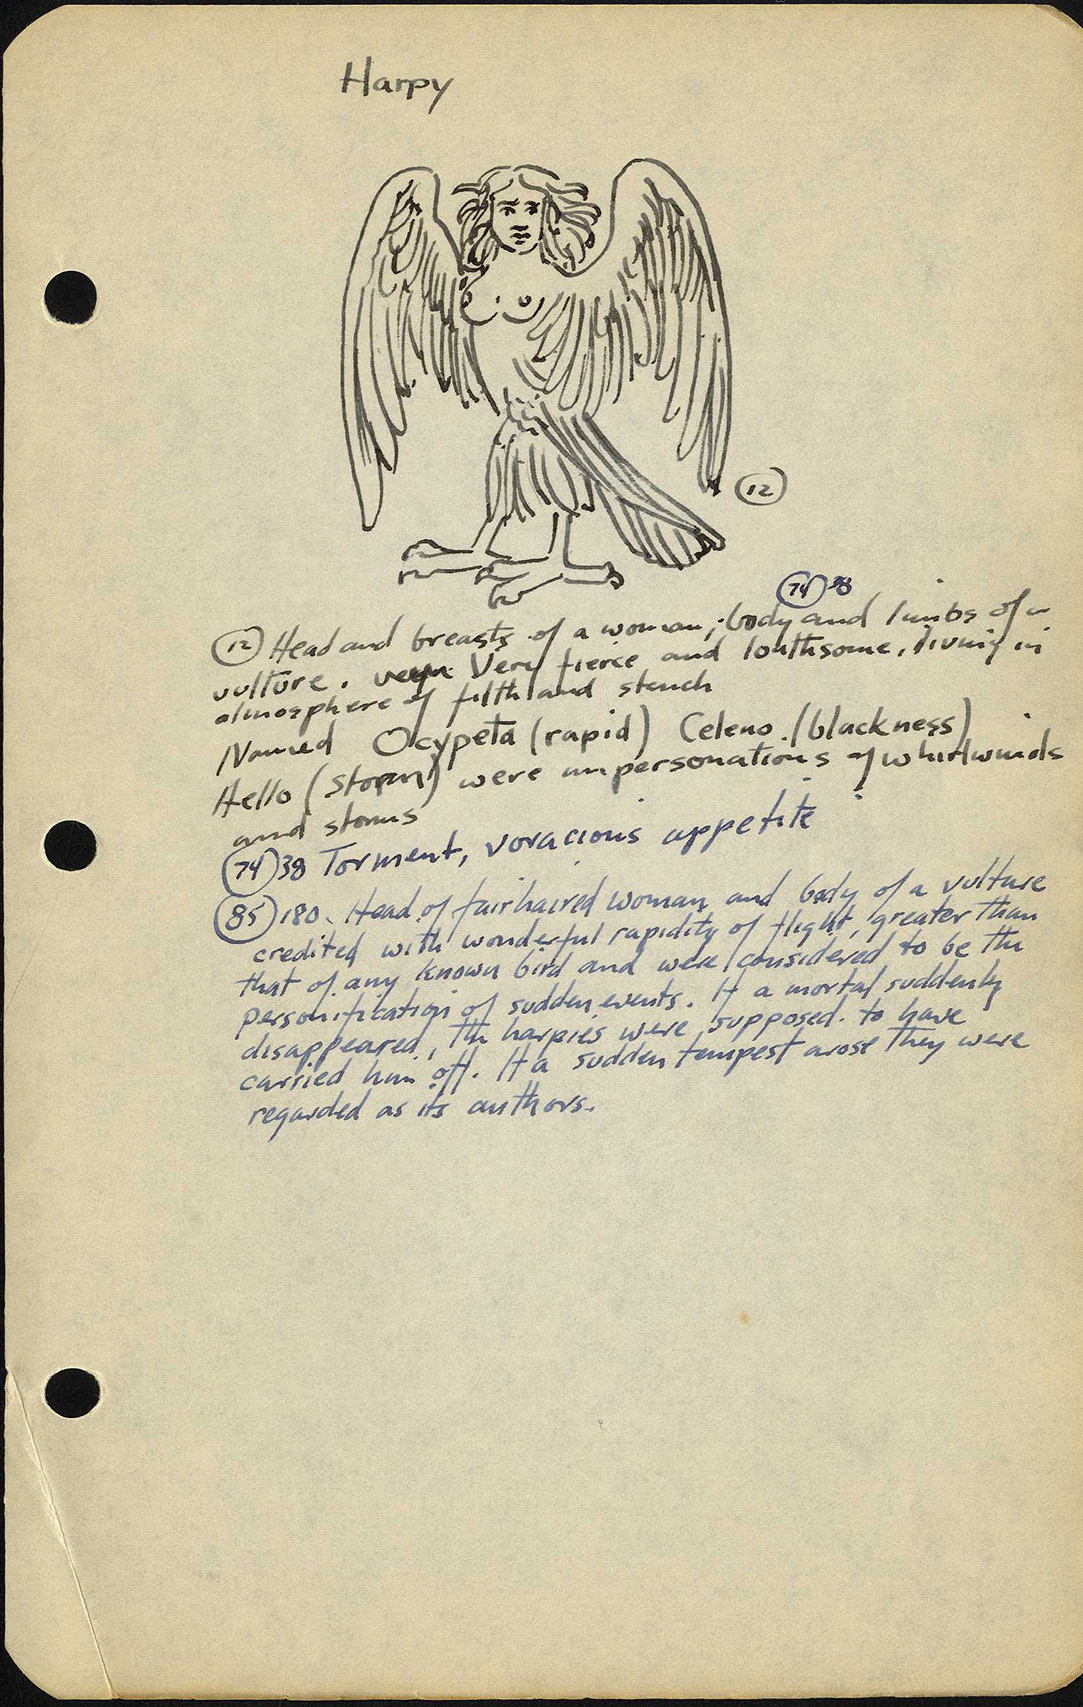 Harpy
(12)
(74) 38
(12) Head and breasts of a woman; body and limbs of a
vulture. Very fierce and loathsome, living in
atmosphere of filth and stench
Named Ocypeta (rapid) Celeno (blackness)
Hello (storm) were impersonations of whirlwinds
and storms
(74) 38 Torment, voracious appetite
(85) 180. Head of fairhaired woman and body of a vulture
credited with wonderful rapidity of flight, greater than
that of any known bird and were considered to be the
personification of sudden events. If a mortal suddenly
disappeared, the harpies were supposed to have
carried him off. If a sudden tempest arose they were
regarded as its authors.